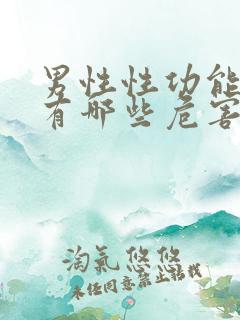 男性性功能
有哪些危害
淘氣悠悠
未经同意禁止搬载